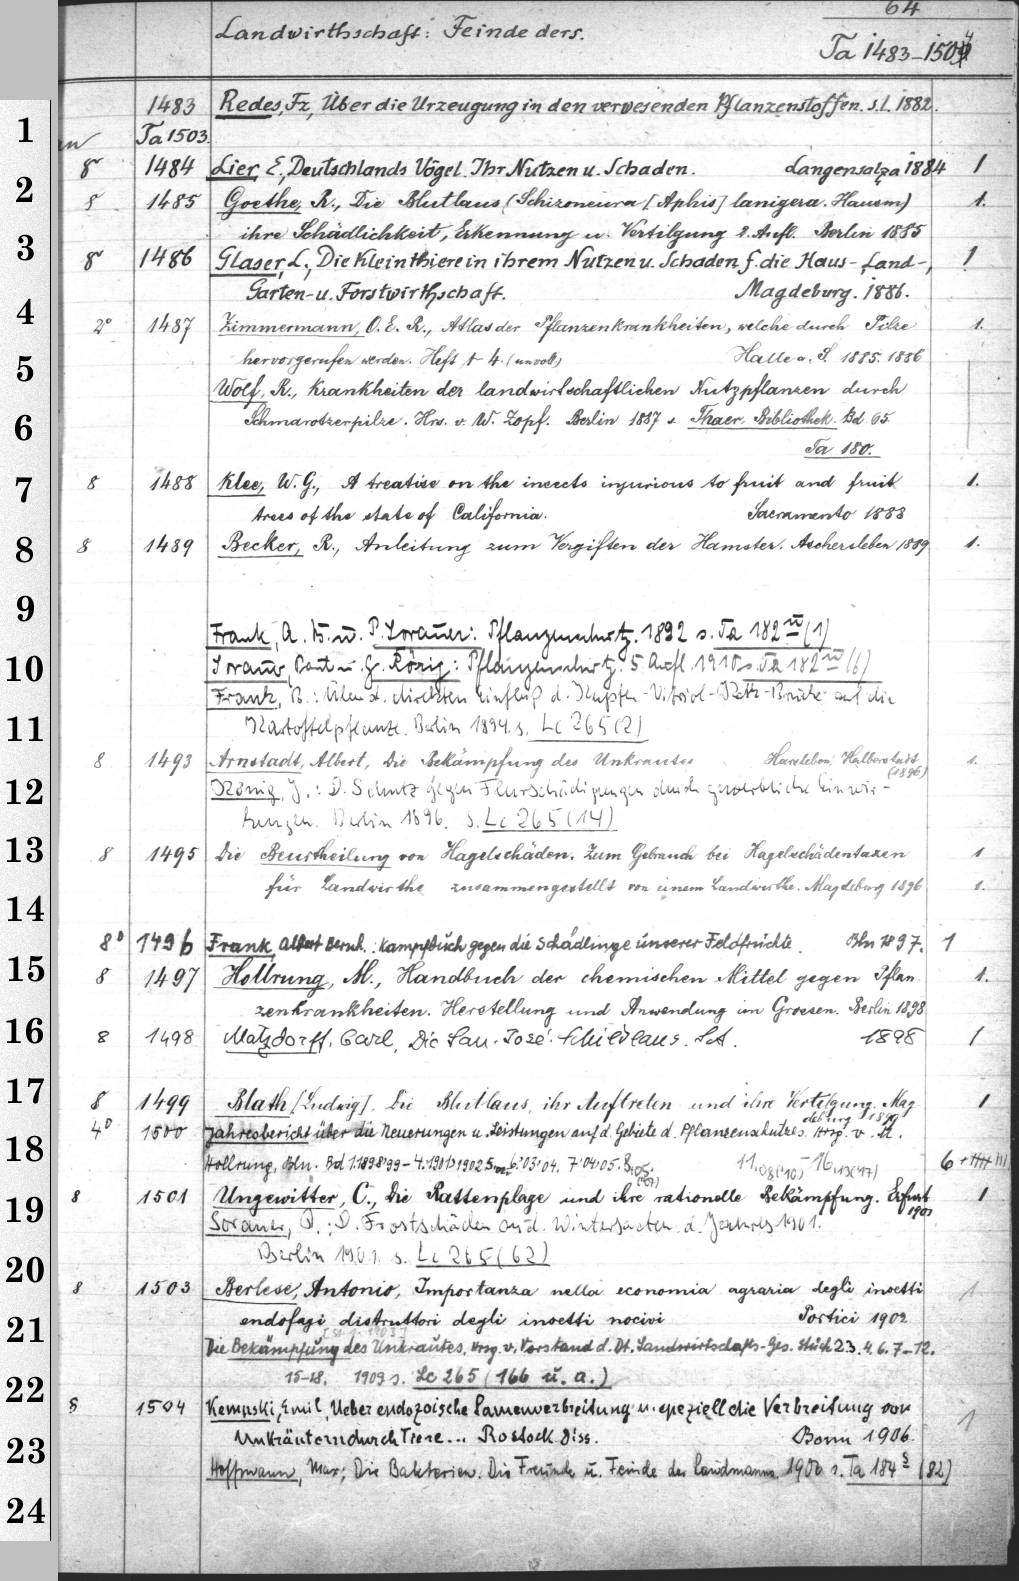 64
Landwirthschaft: Feinde ders.
Ta 1483-1504
1483 Redes, Fz, Über die Urzeugung in den verwesenden Pflanzenstoffen. s.l. 1882.
1 Ta 1503
8° 1484 Lier, E., Deutschlands Vögel. Ihr Nutzen u. Schaden. Langensalza 1884 1
2 8 1485 Goethe, R., Die Blutlaus (Schizoneura [Aphis] lanigera. Hausm) 1.
ihre Schädlichkeit, Erkennung u. Vertilgung 2. Aufl. Berlin 1885
3 8° 1486 Glaser, L., Die Kleinthiere in ihrem Nutzen u. Schaden f. die Haus-, Land-, 1
Garten- u. Forstwirthschaft. Magdeburg. 1886.
4 2° 1487 Zimmermann, O. E. R., Atlas der Pflanzenkrankheiten, welche durch Pilze 1.
hervorgerufen werden. Heft 1-4. (unvollst) Halle a. S. 1885. 1886
5 Wolf, R., Krankheiten der landwirtschaftlichen Nutzpflanzen durch
6 Schmarotzerpilze. Hrs. v. W. Zopf. Berlin 1887 s. Thaer-Bibliothek. Bd. 65.
Ta 180.
7 8 1488 Klee, W. G., A treatise on the insects injurious to fruit and fruit 1.
trees of the state of California. Sacramento 1888
8 8 1489 Becker, R., Anleitung zum Vergiften der Hamster. Aschersleben 1889 1.
9
Frank, A. B. u. P. Sorauer: Pflanzenschutz. 1892 s. Ta 182 m (1)
10 Sorauer, Paul u. G. Rörig: Pflanzenschutz. 5 Aufl. 1910 s. Ta 182 m (6)
Frank, B.: Über d. direkten Einfluß d. Kupfer-Vitriol-Kalk-Brühe auf die
11 Kartoffelpflanze. Berlin 1894. s. Lc 265 (2)
8 1493 Arnstadt, Albert, Die Bekämpfung des Unkrautes Harsleben, Halberstadt (1896) 1.
12 König, J.: D. Schutz gegen Flurschädigungen durch gewerbliche Einwir-
kungen. Berlin 1896. s. Lc 265 (14)
13 8 1495 Die Beurtheilung von Hagelschäden. Zum Gebrauch bei Hagelschädentaxen 1
für Landwirthe zusammengestellt von einem Landwirthe. Magdeburg 1896 1.
14
8° 1496 Frank, Albert Bernh.: Kampfbuch gegen die Schädlinge unserer Feldfrüchte. Bln 1897. 1
15 8 1497 Hollrung, M., Handbuch der chemischen Mittel gegen Pflan 1.
zenkrankheiten. Herstellung und Anwendung im Grossen. Berlin 1898
16 8 1498 Matzdorff, Carl, Die San-José-Schildlaus. SA. 1898 1
17 8 1499 Blath [Ludwig]. Die Blutlaus, ihr Auftreten und ihre Vertilgung. Mag 1
deburg 1899
18 4° 1500 Jahresbericht über die Neuerungen u. Leistungen auf d. Gebiete d. Pflanzenschutzes. Hrsg. v. M.
Hollrung, Bln. Bd 1. 1898/99-4. 1901 6
19 8 1501 Ungewitter, C., Die Rattenplage und ihre rationelle Bekämpfung. Erfurt 1
Sorauer, P.: D. Frostschäden an d. Wintersaaten d. Jahres 1901.
20 Berlin 1901. s. Lc 265 (62)
8 1503 Berlese, Antonio, Importanza nella economia agraria degli insetti 1
21 endofagi distruttori degli insetti nocivi Portici 1902.
Die Bekämpfung des Unkrautes, hrsg. v. Vorstand d. Dt. Landwirtschafts-Ges. Stück 2.3. 4. 6. 7-12.
22 15-18. 1909 s. Lc 265 (166 u. a.)
8 1504 Kempski, Emil, Ueber endozoische Samenverbreitung u. speziell die Verbreitung von 1
23 Unkräutern durch Tiere... Rostock Diss. Bonn 1906.
Hoffmann, Max; Die Bakterien. Die Freunde u. Feinde des Landmanns 1900 s. Ta 184 s (82)
24